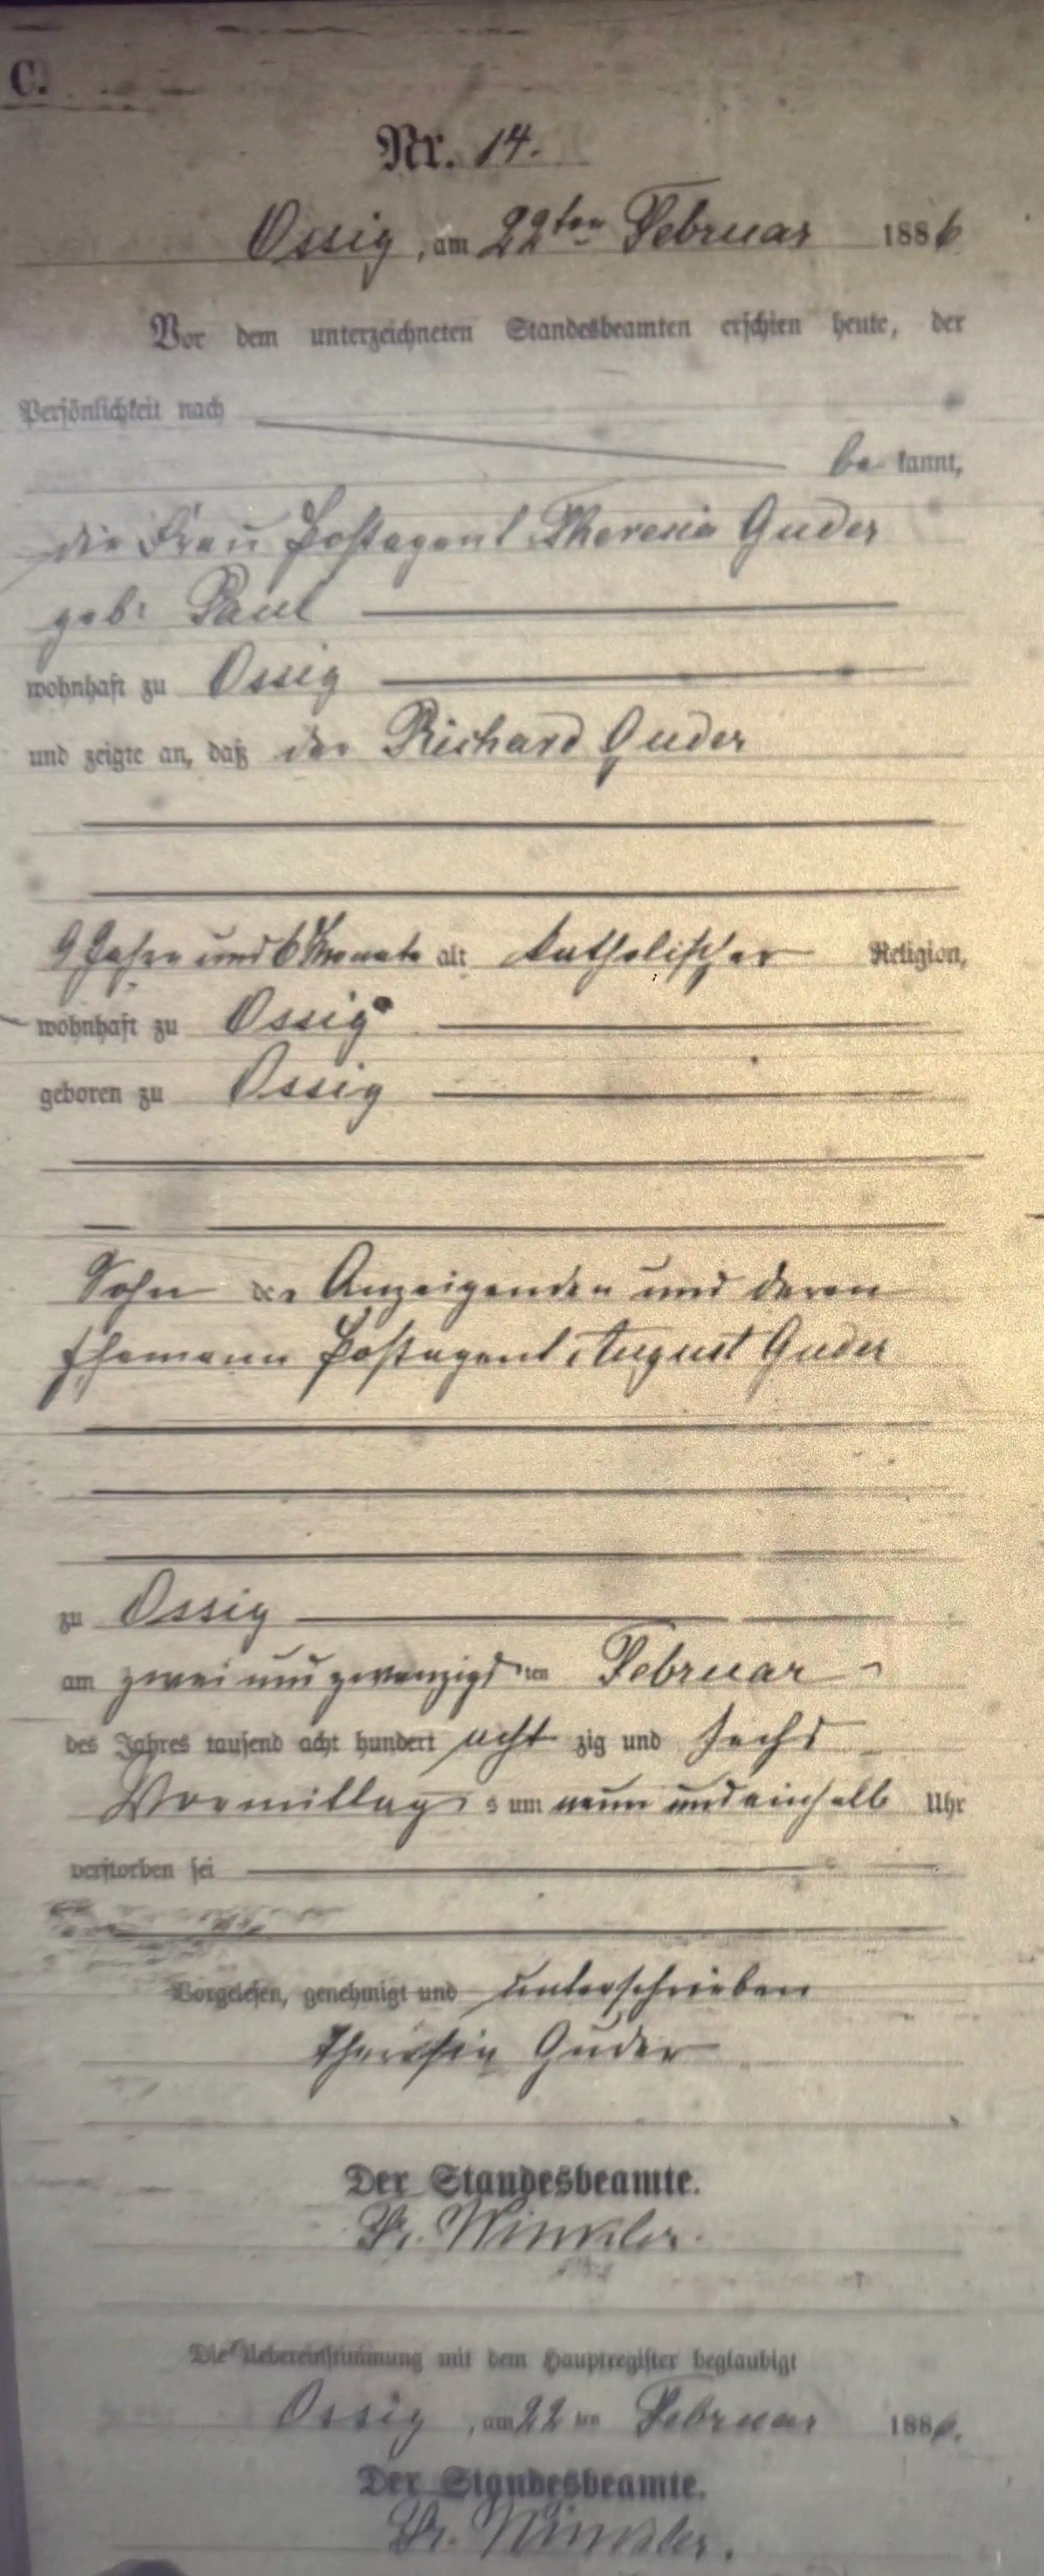 C.
Nr. 14.
Ossig, am 22ten Februar 1886
Vor dem unterzeichneten Standesbeamten erschien heute, der
Persönlichkeit nach
be kannt,
die Frau Postagent Theresia Guder
geb: Paul
wohnhaft zu Ossig
und zeigte an, daß der Richard Guder
9 Jahre und 6 Monate alt katholischer Religion,
wohnhaft zu Ossig
geboren zu Ossig
Sohn der Anzeigenden und deren
Ehemann Postagent August Guder
zu Ossig
am zwei und zwanzigsten Februar
des Jahres tausend acht hundert acht zig und sechs
Vormittag s um neun und einhalb Uhr
verstorben sei
Vorgelesen, genehmigt und unterschrieben
Theresia Guder
Der Standesbeamte.
Winkler.
Die Uebereinstimmung mit dem Hauptregister beglaubigt
Ossig, am 22 ten Februar 1886.
Der Standesbeamte.
Winkler.